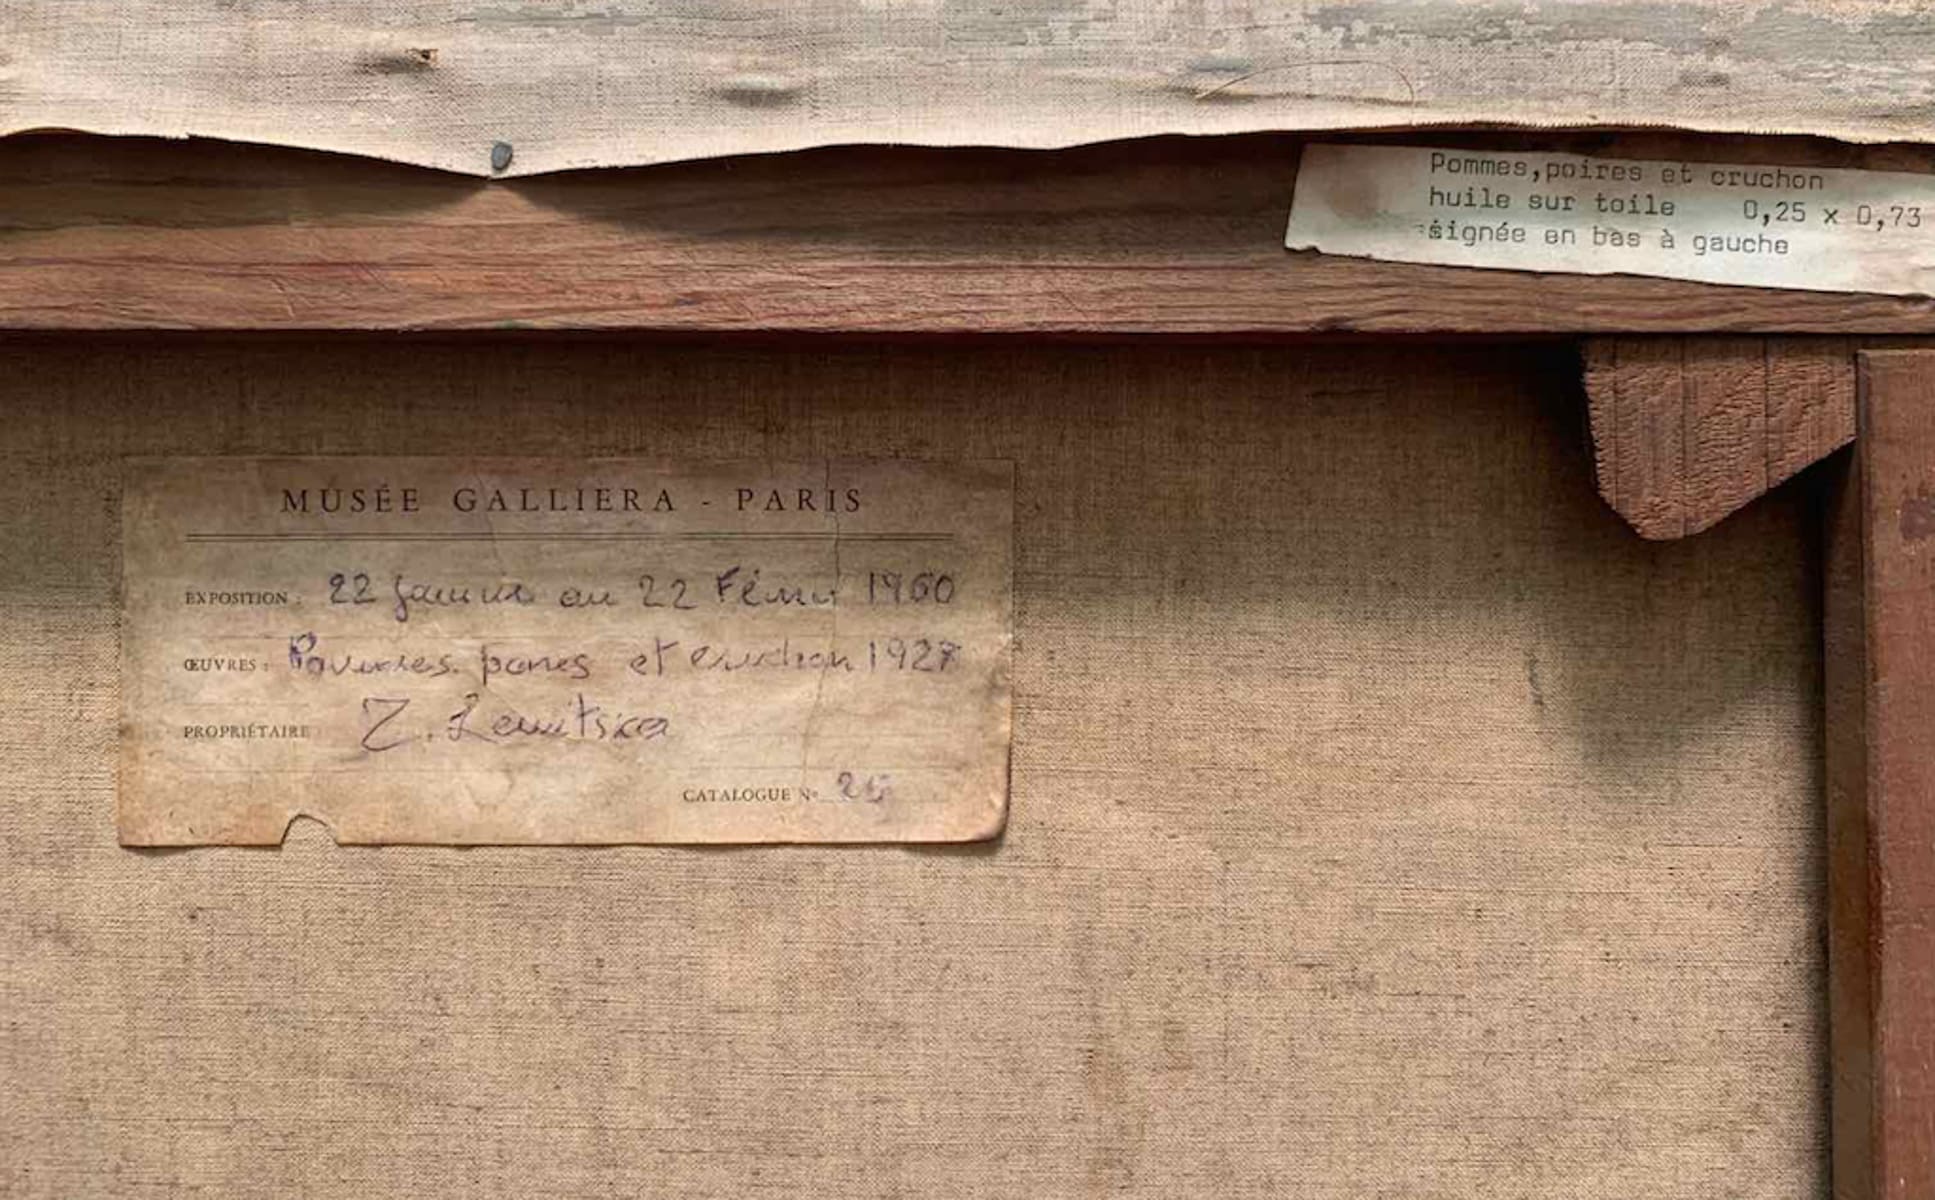 Pommes,poires et cruchon
huile sur toile 0,25 x 0,73
signée en bas à gauche
MUSÉE GALLIERA - PARIS
EXPOSITION : 22 Janvier au 22 Février 1960
ŒUVRES : Pommes. poires et cruchon 1927
PROPRIÉTAIRE Z.
CATALOGUE No